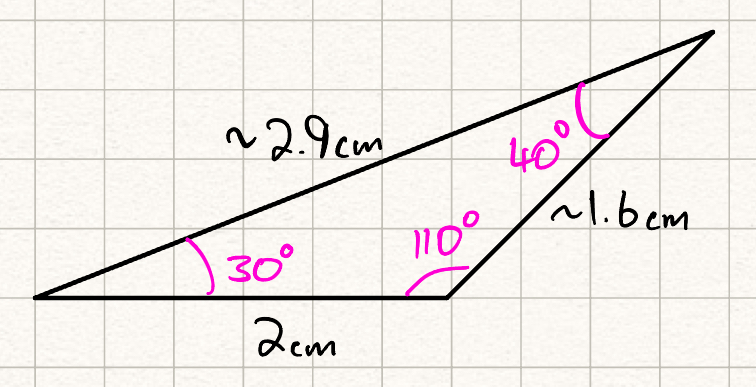 ~2.9cm
40°
~1.6cm
110°
30°
2cm